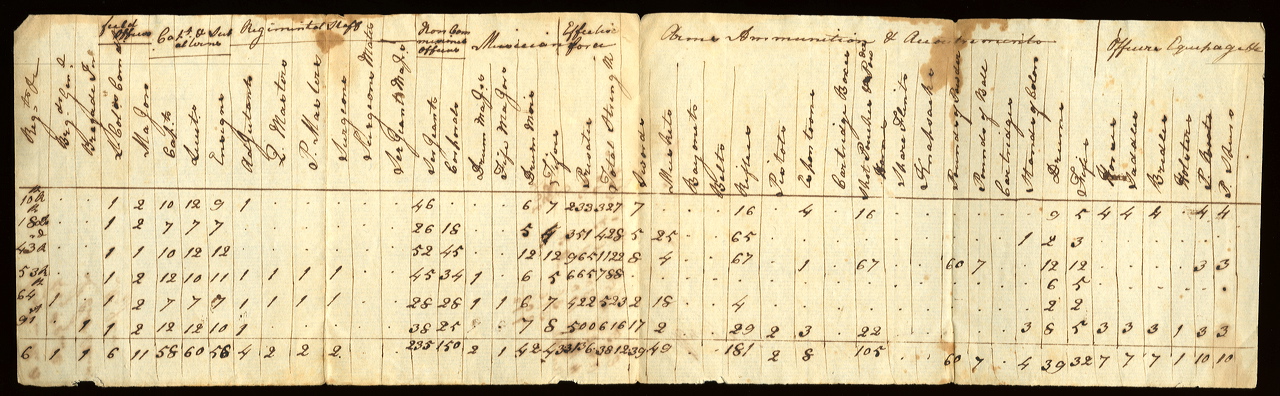 field Officers Capts. & Sub alterns Regimental Staff Non Com missioned Officers Musicians Effective force Arms Ammunition & Accoutrements Officers Equipage &c
Brig. Genl. Brigade L. Colos. Majors Capts Lieuts Ensigns Adjutants Q. Masters P. Masters Surgeons Surgeons Mates Serjeants Major Serjeants Corporals Drum Majors Fife Majors Drum Fifers Privates Total Strength Swords Muskets Bayonets Belts Rifles Pistols Espontoons Cartridge Boxes Shot Pouches & Horns Spare Flints Knapsacks Pounds of Powder Pounds of Ball Cartridges Stands of Colors Drums Fifes Horses Saddles Bridles Holsters P. Boots P. Spurs
10th . . 1 2 10 12 9 1 . . . . . 46 . . 6 7 233 327 7 . . 16 . 4 . 16 . . . . . . 9 5 4 4 4 . 4 4
18th . . 1 2 7 7 7 . . . . . . 26 18 . . 5 4 351 428 5 25 . . 65 . . . . . . . . . 1 2 3
43d . . 1 1 10 12 12 . . . . . . 52 45 . . 12 12 965 1122 8 4 . . 67 . 1 . 67 . . 60 7 . . 12 12 . . . . 3 3
53d . . 1 2 12 10 11 1 1 1 1 . . 45 34 1 . 6 5 665 788 . . . . . . . . . . . . . . . 6 5 . . . . . .
64th 1 . 1 2 7 7 7 1 1 1 1 . . 28 28 1 1 6 7 422 523 2 18 . . 4 . . . . . . . . . . 2 2
91st . 1 1 2 12 12 10 1 . . . . . 38 25 . . 7 8 500 616 17 2 . . 29 2 3 . 22 . . . . . 3 8 5 3 3 3 1 3 3
6 1 1 6 11 58 60 56 4 2 2 2 . . 235 150 2 1 42 43 3136 3812 39 49 . . 181 2 8 . 105 . . 60 7 . 4 39 32 7 7 7 1 10 10